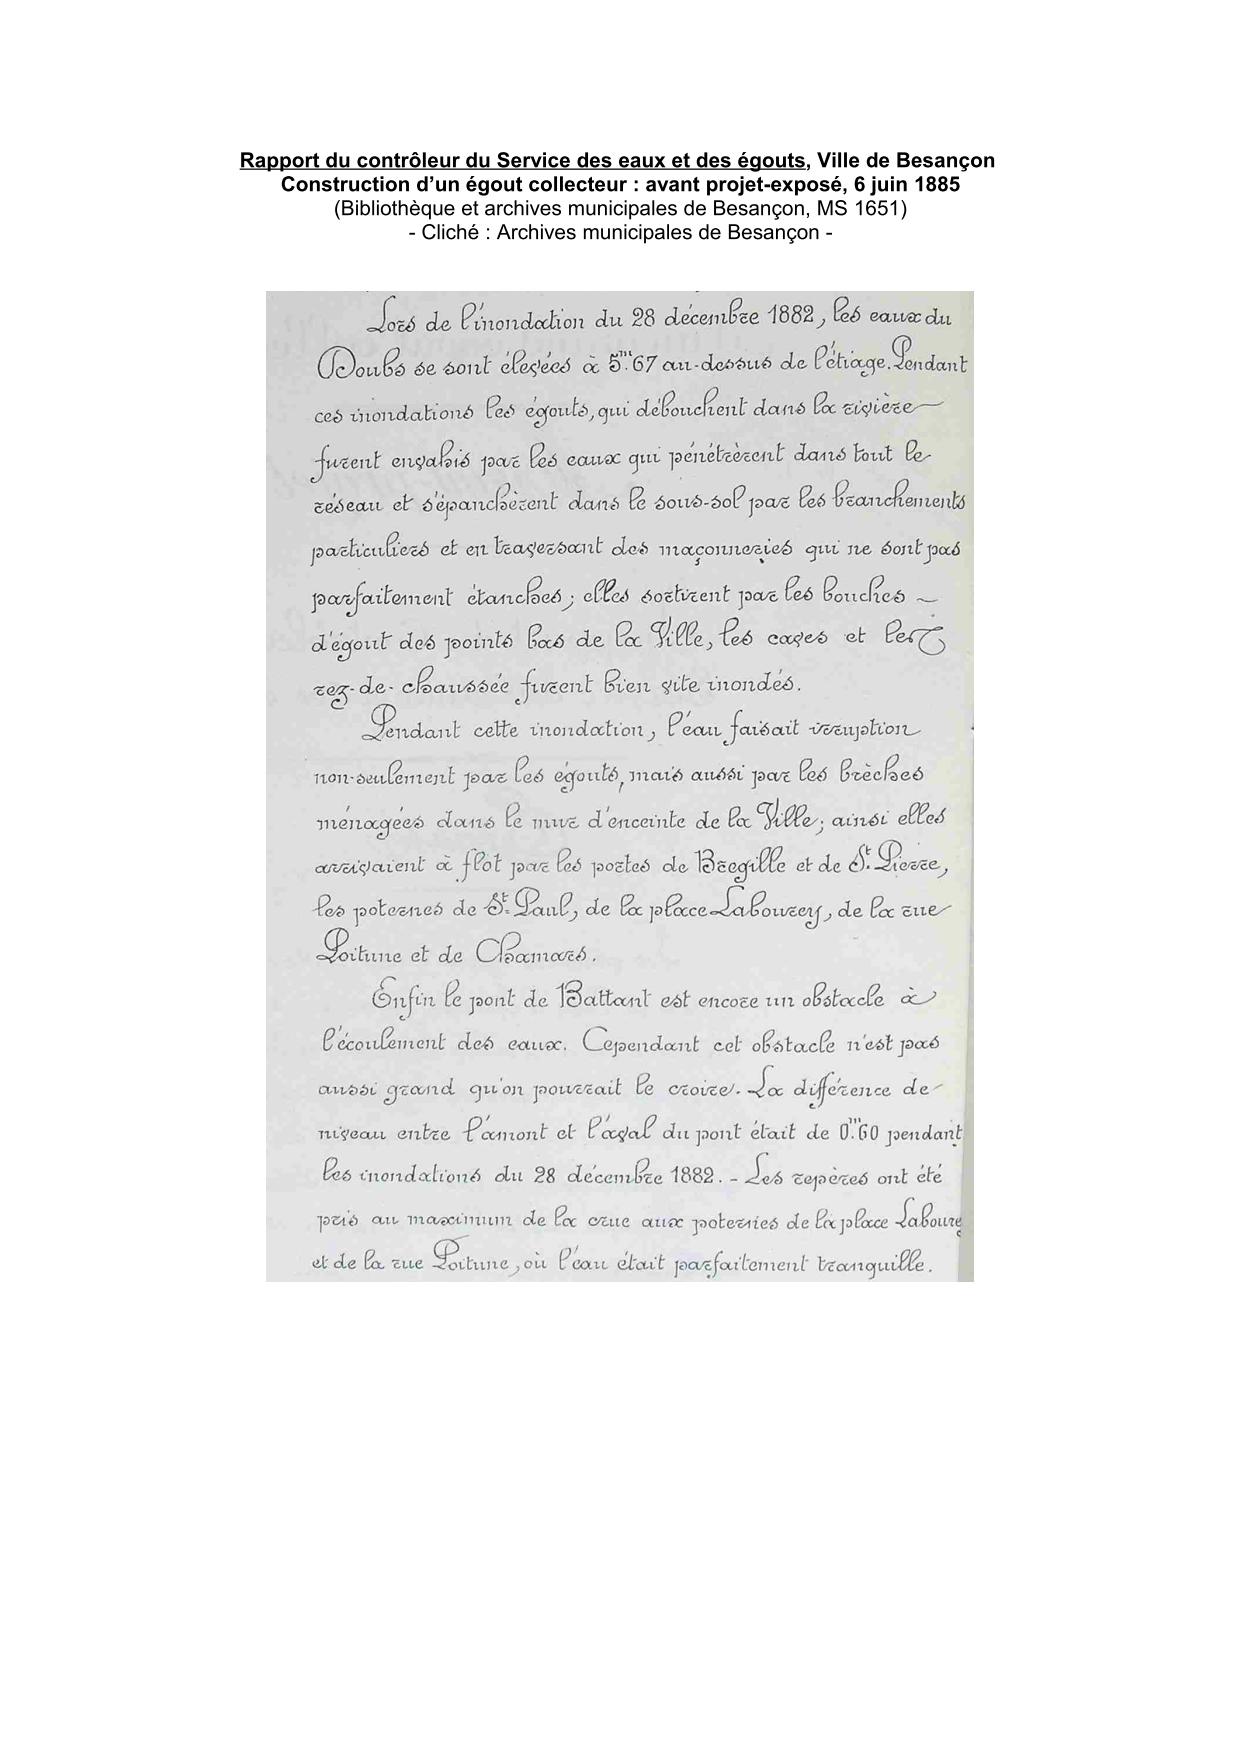 Rapport du contrôleur du Service des eaux et des égouts, Ville de Besançon
Construction d’un égout collecteur : avant projet-exposé, 6 juin 1885
(Bibliothèque et archives municipales de Besançon, MS 1651)
- Cliché : Archives municipales de Besançon -
Lors de l'inondation du 28 décembre 1882, les eaux du
Doubs se sont élevées à 5.m67 au-dessus de l'étiage. Pendant
ces inondations les égouts, qui débouchent dans la rivière
furent envahis par les eaux qui pénétrèrent dans tout le
réseau et s'épanchèrent dans le sous-sol par les branchements
particuliers et en traversant des maçonneries qui ne sont pas
parfaitement étanches ; elles sortirent par les bouches
d'égout des points bas de la Ville, les caves et les
rez-de-chaussée furent bien vite inondés.
Pendant cette inondation, l'eau faisait irruption
non-seulement par les égouts, mais aussi par les brèches
ménagées dans le mur d'enceinte de la Ville ; ainsi elles
arrivaient à flot par les portes de Bregille et de St. Pierre,
les poternes de St. Paul, de la place Labourey, de la rue
Poitune et de Chamars.
Enfin le pont de Battant est encore un obstacle à
l'écoulement des eaux. Cependant cet obstacle n'est pas
aussi grand qu'on pourrait le croire. La différence de
niveau entre l'amont et l'aval du pont était de 0.m60 pendant
les inondations du 28 décembre 1882. - Les repères ont été
pris au maximum de la crue aux poternes de la place Labourey
et de la rue Poitune, où l'eau était parfaitement tranquille.